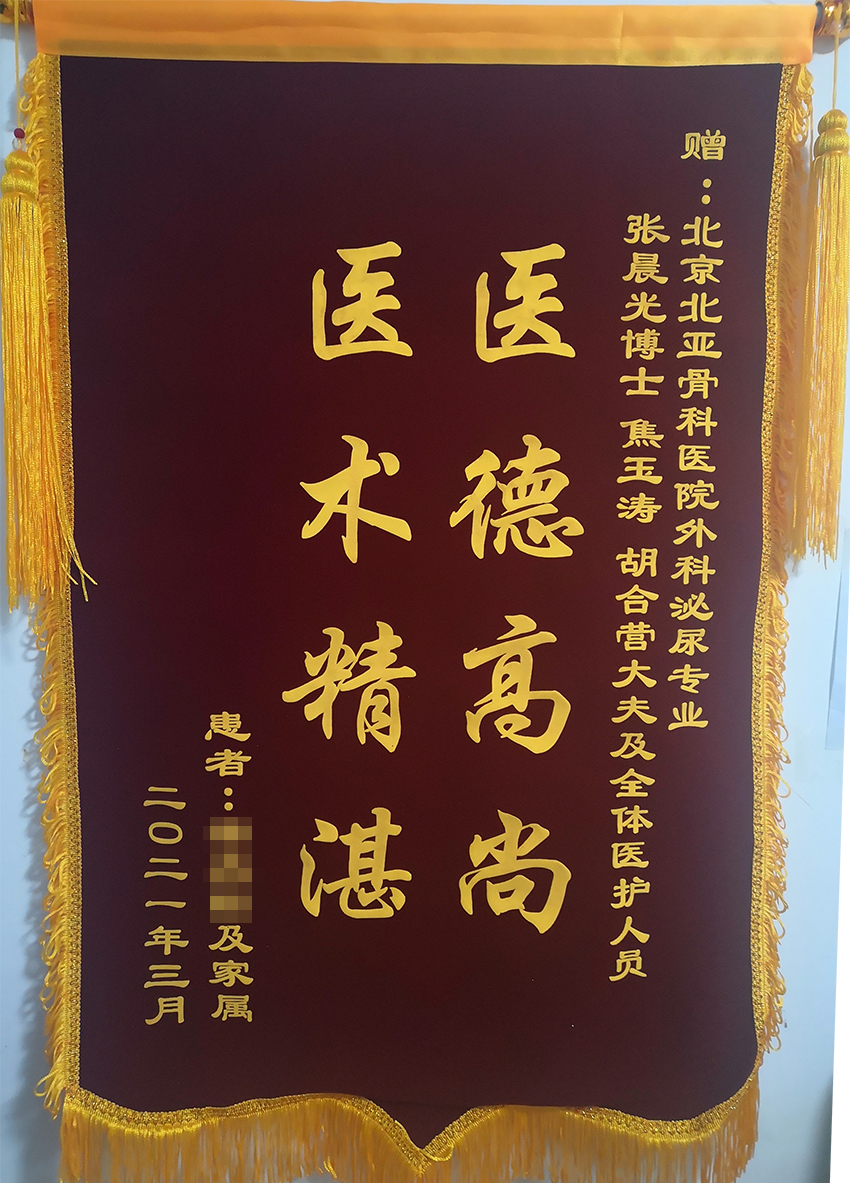 赠：北京北亚骨科医院外科泌尿专业
张晨光博士 焦玉涛 胡合营大夫及全体医护人员
医德高尚
医术精湛
患者：及家属
二〇二一年三月